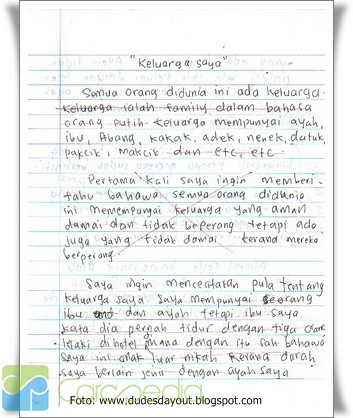 "Keluarga saya"
Semua orang didunia ini ada keluarga.
Keluarga ialah family dalam bahasa
orang putih. Keluarga mempunyai ayah,
ibu, Abang, kakak, adek, nenek, datuk,
pakcik, makcik dan etc, etc
Pertama kali saya ingin memberi-
tahu bahawa semua orang didunia
ini memempunyai keluarga yang aman
damai dan tidak beperang tetapi ada
juga yang tidak damai kerana mereka
berperang.
Saya ingin menceritakan pula tentang
keluarga saya. Saya mempunyai seorang
ibu dan ayah tetapi ibu saya
kata dia pernah tidur dengan tiga orang
lelaki dihotel mana dengan itu sah bahawa
saya ini anak luar nikah kerana darah
saya berlain jenis dengan ayah saya
Carcpedia
Foto: www.dudesdayout.blogspot.com